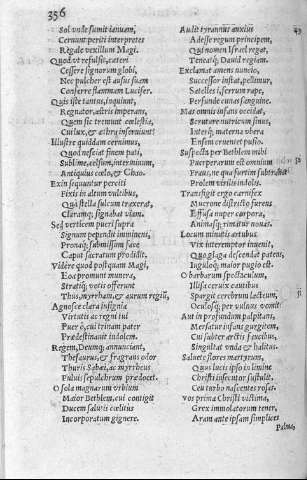 356
Sol unde sumit ianuam,
Cernunt periti interpretes
Regale vexillum Magi.
Quod ut refulsit, cæteri
Cessere signorum globi,
Nec pulcher est ausus suam
Conferre flammam Lucifer.
Quis iste tantus, inquiunt,
Regnator, astris imperans,
Quem sic tremunt cælestia,
Cui lux, & æthra inserviunt?
Illustre quiddam cernimus,
Quod nesciat finem pati,
Sublime, celsum, interminum,
Antiquius cælo, & Chao.
Exin sequuntur perciti
Fixis in altum vultibus,
Qua stella sulcum traxerat,
Claramq; signabat viam.
Sed verticem pueri supra
Signum pependit imminens,
Pronaq; submissum face
Caput sacratum prodidit.
Videre quod postquam Magi,
Eoa promunt munera,
Stratiq; votis offerunt
Thus, myrrham, & aurum regiū,
Agnosce clara insignia
Virtutis ac regni tui
Puer ô, cui trinam pater
Prædestinavit indolem.
Regem, Deumq; annunciant,
Thesaurus, & fragrans odor
Thuris Sabæi, ac myrrheus
Pulvis sepulchrum prædocet.
O sola magnarum urbium
Maior Bethlem, cui contigit
Ducem salutis cælitus
Incorporatum gignere.
Audit tyrannus anxius
Adesse regum principem,
Qui nomen Israël regat,
Teneatq; David regiam.
Exclamat amens nuncio,
Successor instat, pellimur,
Satelles i, ferrum rape,
Perfunde cunas sanguine.
Mas omnis infans occidat,
Scrutare nutricum sinus,
Interq; materna ubera
Ensem cruentet pusio.
Suspecta per Bethlem mihi
Puerperarum est omnium
Fraus, ne qua furtim subtrahat
Prolem virilis indolis.
Transfigit ergo carnifex
Mucrone districto furens
Effusa nuper corpora,
Animasq; rimatur novas.
Locum minutis artubus
Vix interemptor invenit,
Quo plaga descendat patens,
Iuguloq; maior pugio est.
O barbarum spectaculum,
Illisa cervix cautibus
Spargit cerebrum lacteum,
Oculosq; per vulnus vomit.
Aut in profundum palpitans,
Mersatur infans gurgitem,
Cui subter arctis faucibus,
Singultat unda & halitus.
Salvete flores martyrum,
Quos lucis ipso in limine
Christi insecutor sustulit,
Ceu turbo nascentes rosas.
Vos prima Christi victima,
Grex immolatorum tener,
Aram ante ipsam simplices
Palma